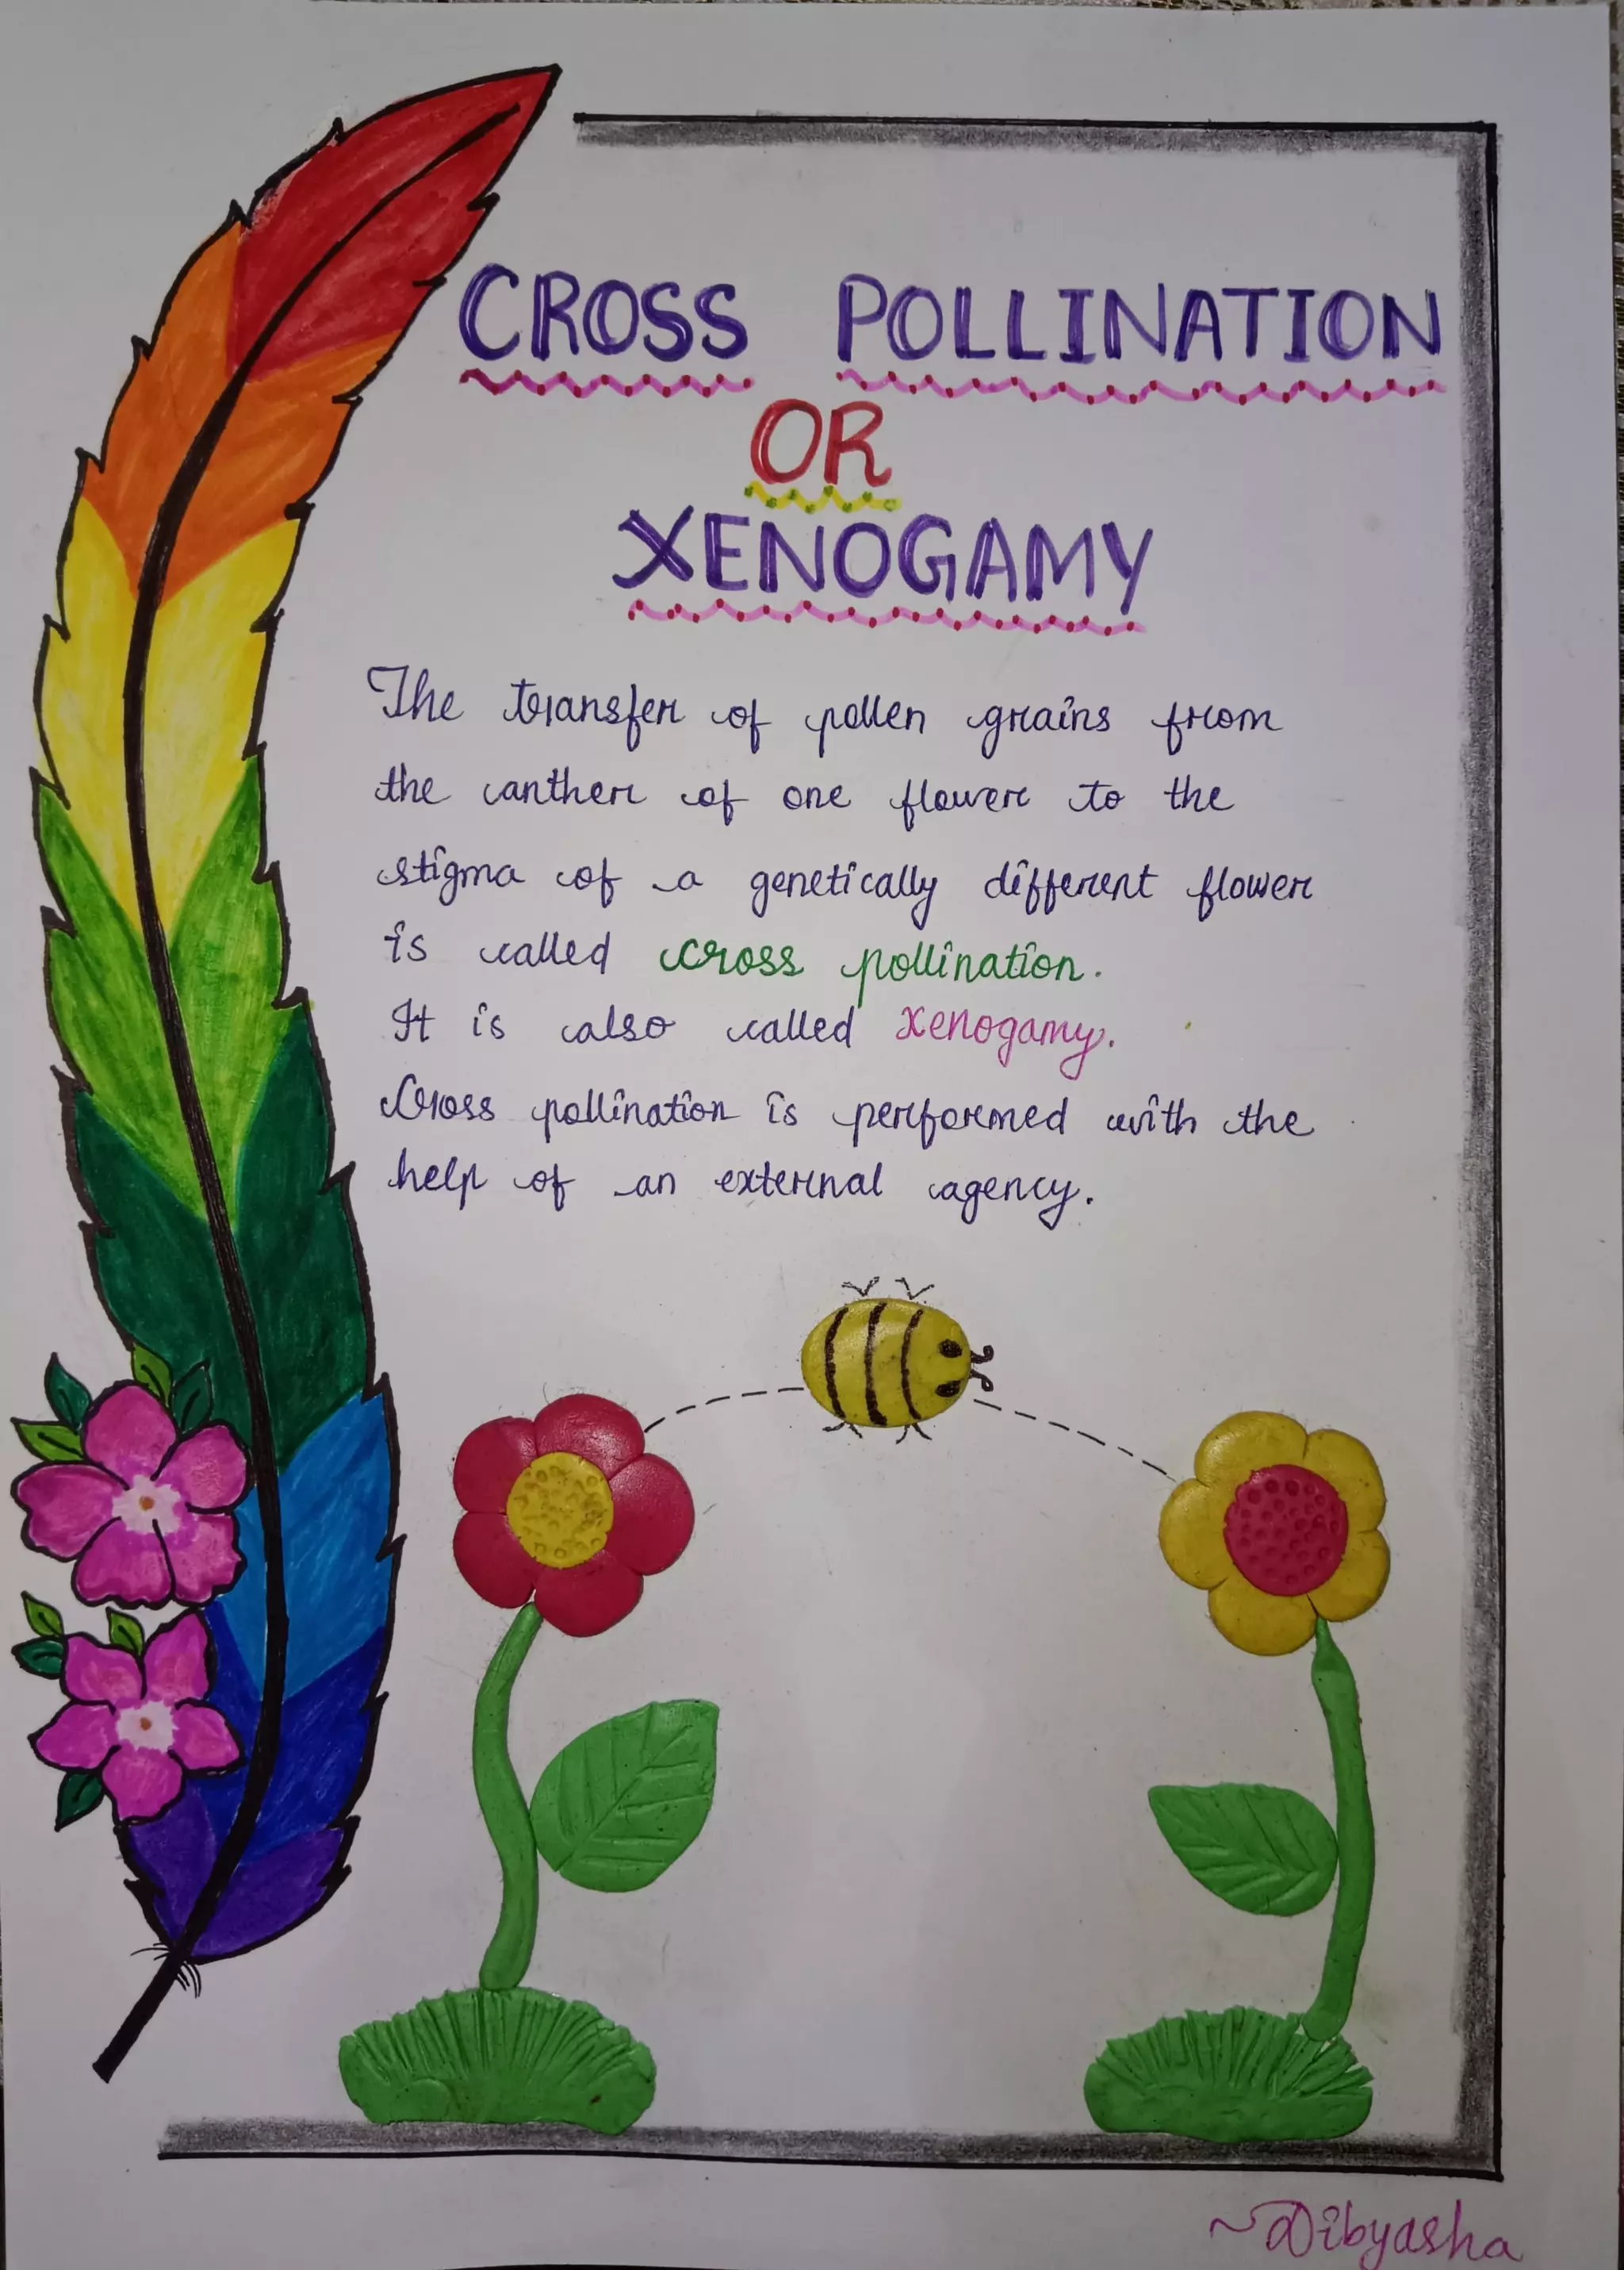 CROSS POLLINATION
OR
XENOGAMY
The transfer of pollen grains from
the anther of one flower to the
stigma of a genetically different flower
is called cross pollination.
It is also called xenogamy.
Cross pollination is performed with the
help of an external agency.
~Dibyasha